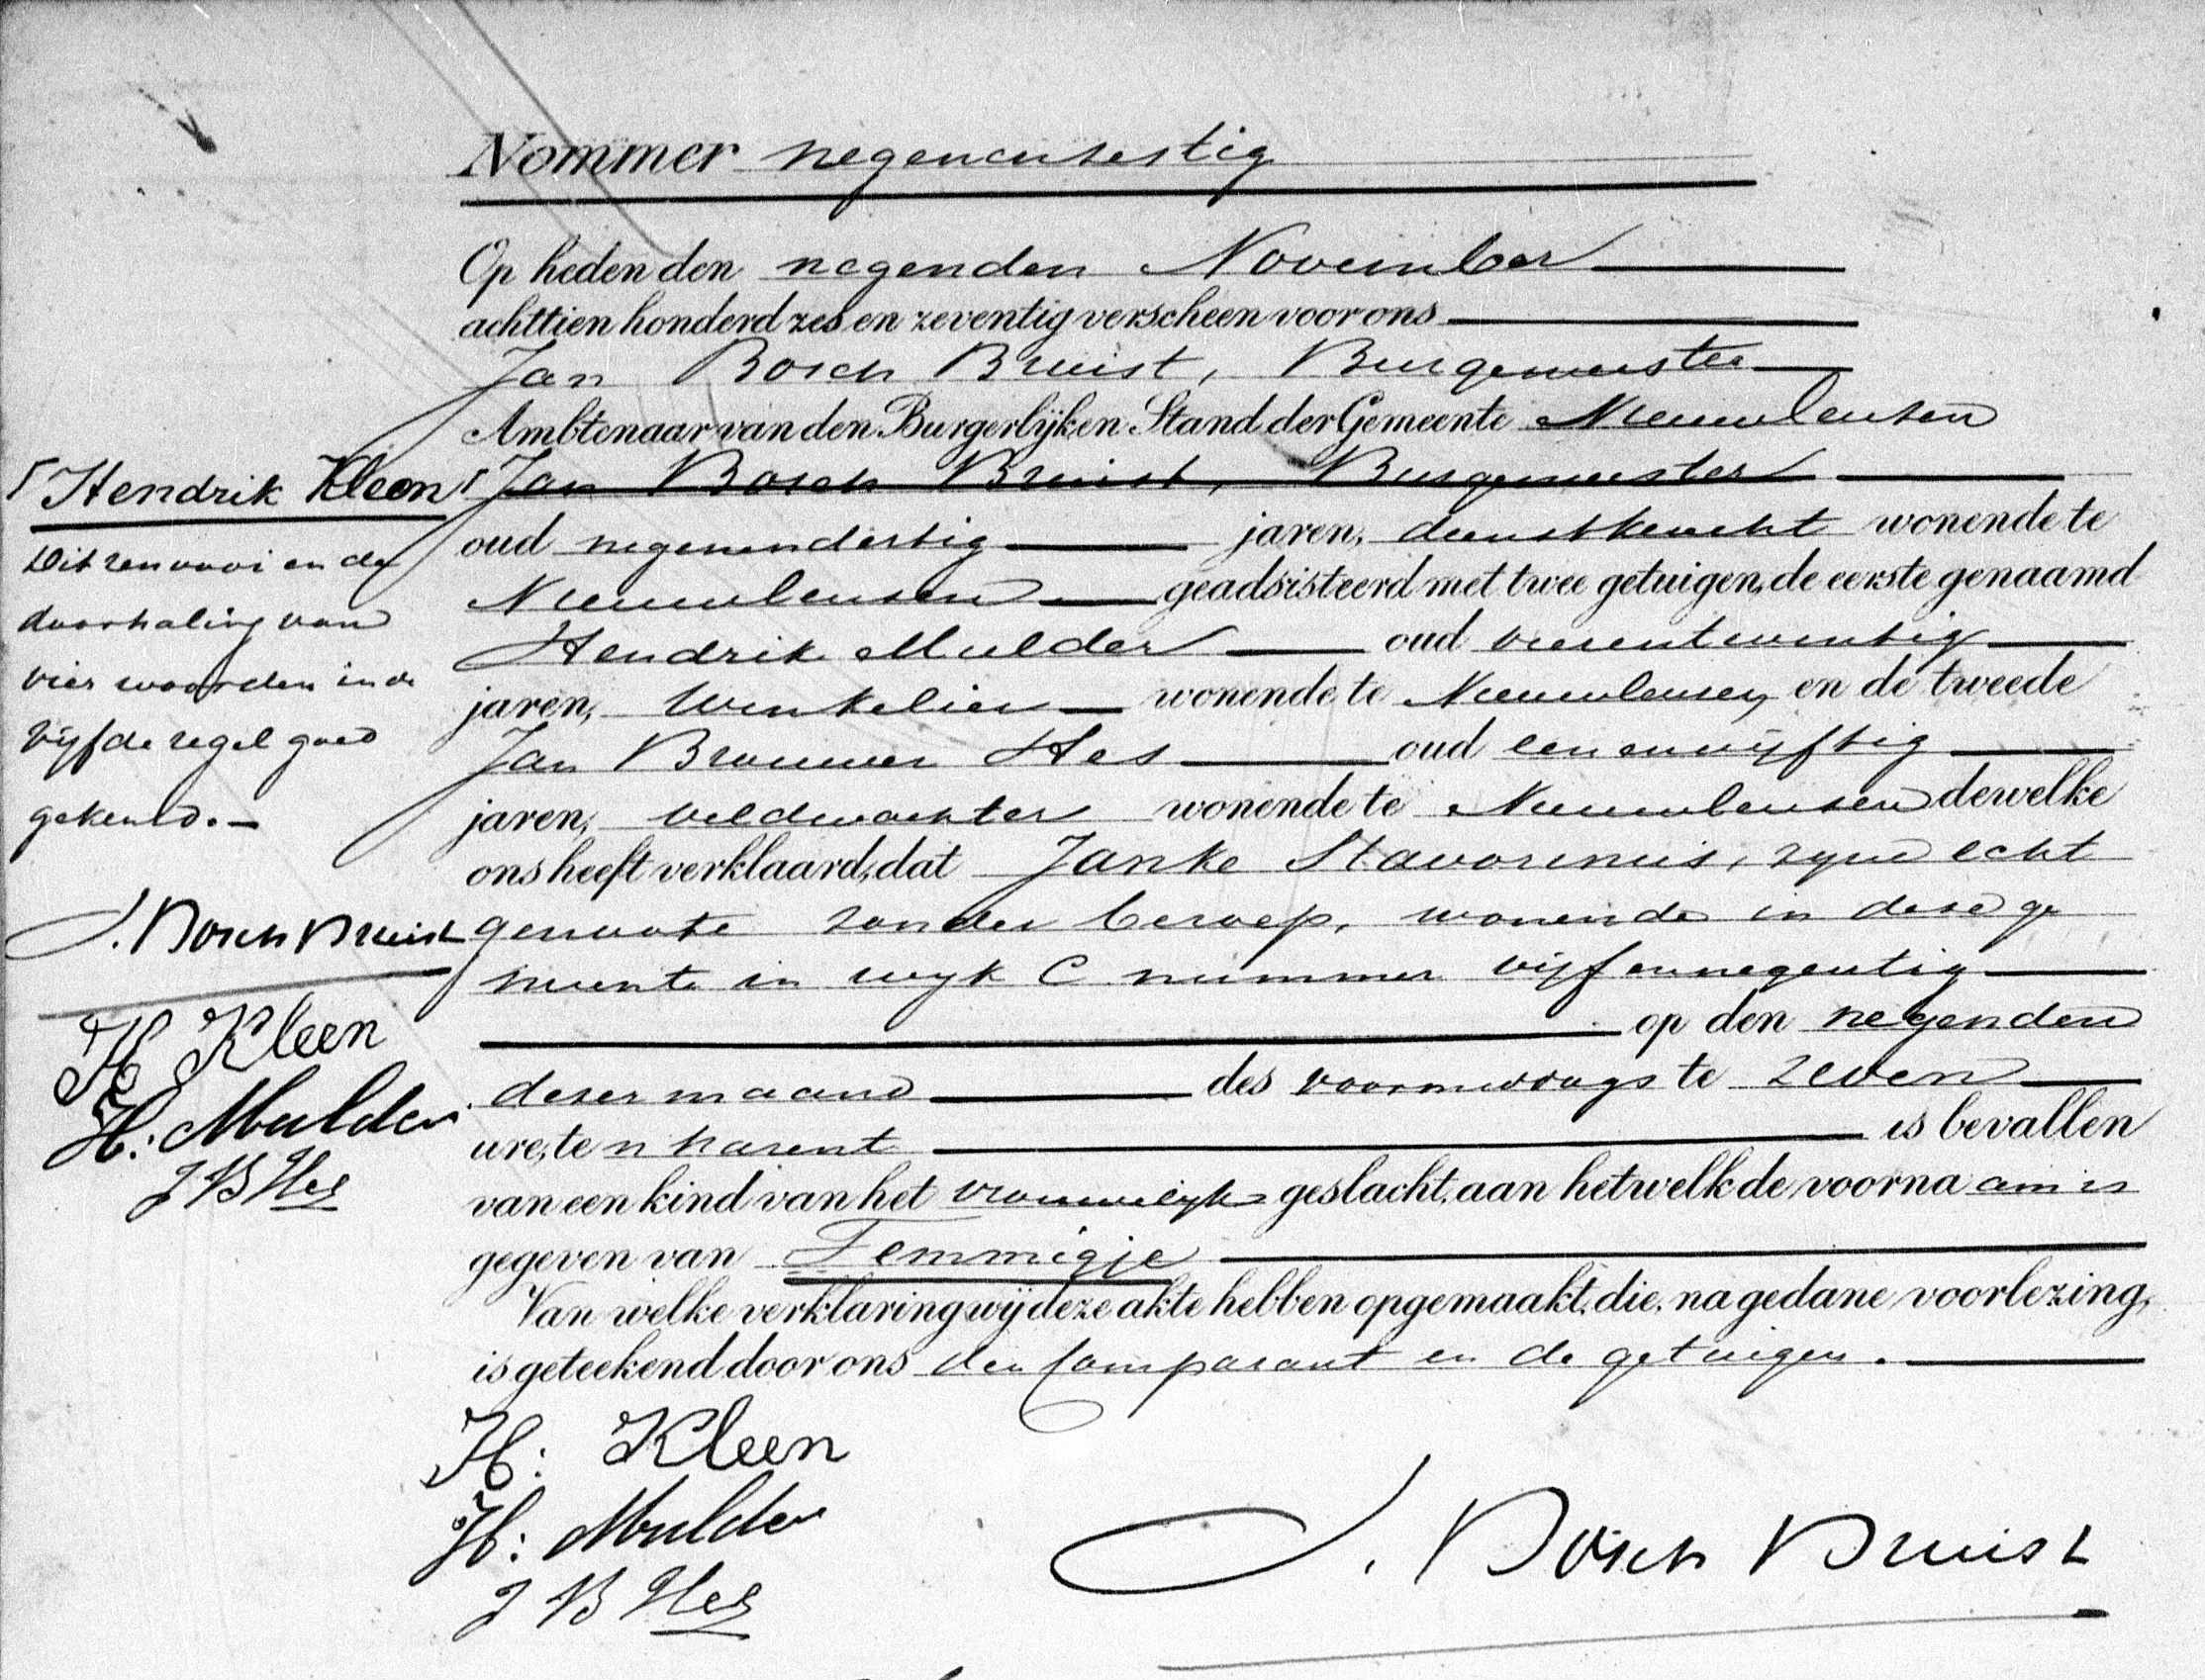 Nommer negenensestig
Op heden den negenden November
achttien honderd zes en zeventig verscheen voor ons
Jan Bosch Bruist, Burgemeester
Ambtenaar van den Burgerlijken Stand der Gemeente Nieuwleusen
Jan Bosch Bruist, Burgemeester
oud negenendertig jaren, dienstknecht wonende te
Nieuwleusen geadsisteerd met twee getuigen, de eerste genaamd
Hendrik Mulder oud vierentwintig
jaren, winkelier wonende te Nieuwleusen, en de tweede
Jan Brouwer Hes oud eenenvijftig
jaren, veldwachter wonende te Nieuwleusen dewelke
ons heeft verklaard, dat Janke Stavorinus, zijne echt
genoote zonder beroep, wonende in deze ge
meente in wijk C nummer vijfennegentig
op den negenden
dezer maand des voormiddags te zeven
ure, te n harent is bevallen
van een kind van het vrouwelijk geslacht, aan hetwelk de voorna am is
gegeven van Femmigje
Van welke verklaring wij deze akte hebben opgemaakt, die, na gedane voorlezing,
is geteekend door ons den Comparant en de getuigen.
H: Kleen
H: Mulder
J B Hes
J. Bosch Bruist
Hendrik Kleen
Dit renvooi en de
doorhaling van
vier woorden in de
vijfde regel goed
gekeurd.
J. Bosch Bruist
H Kleen
H: Mulder
J B Hes